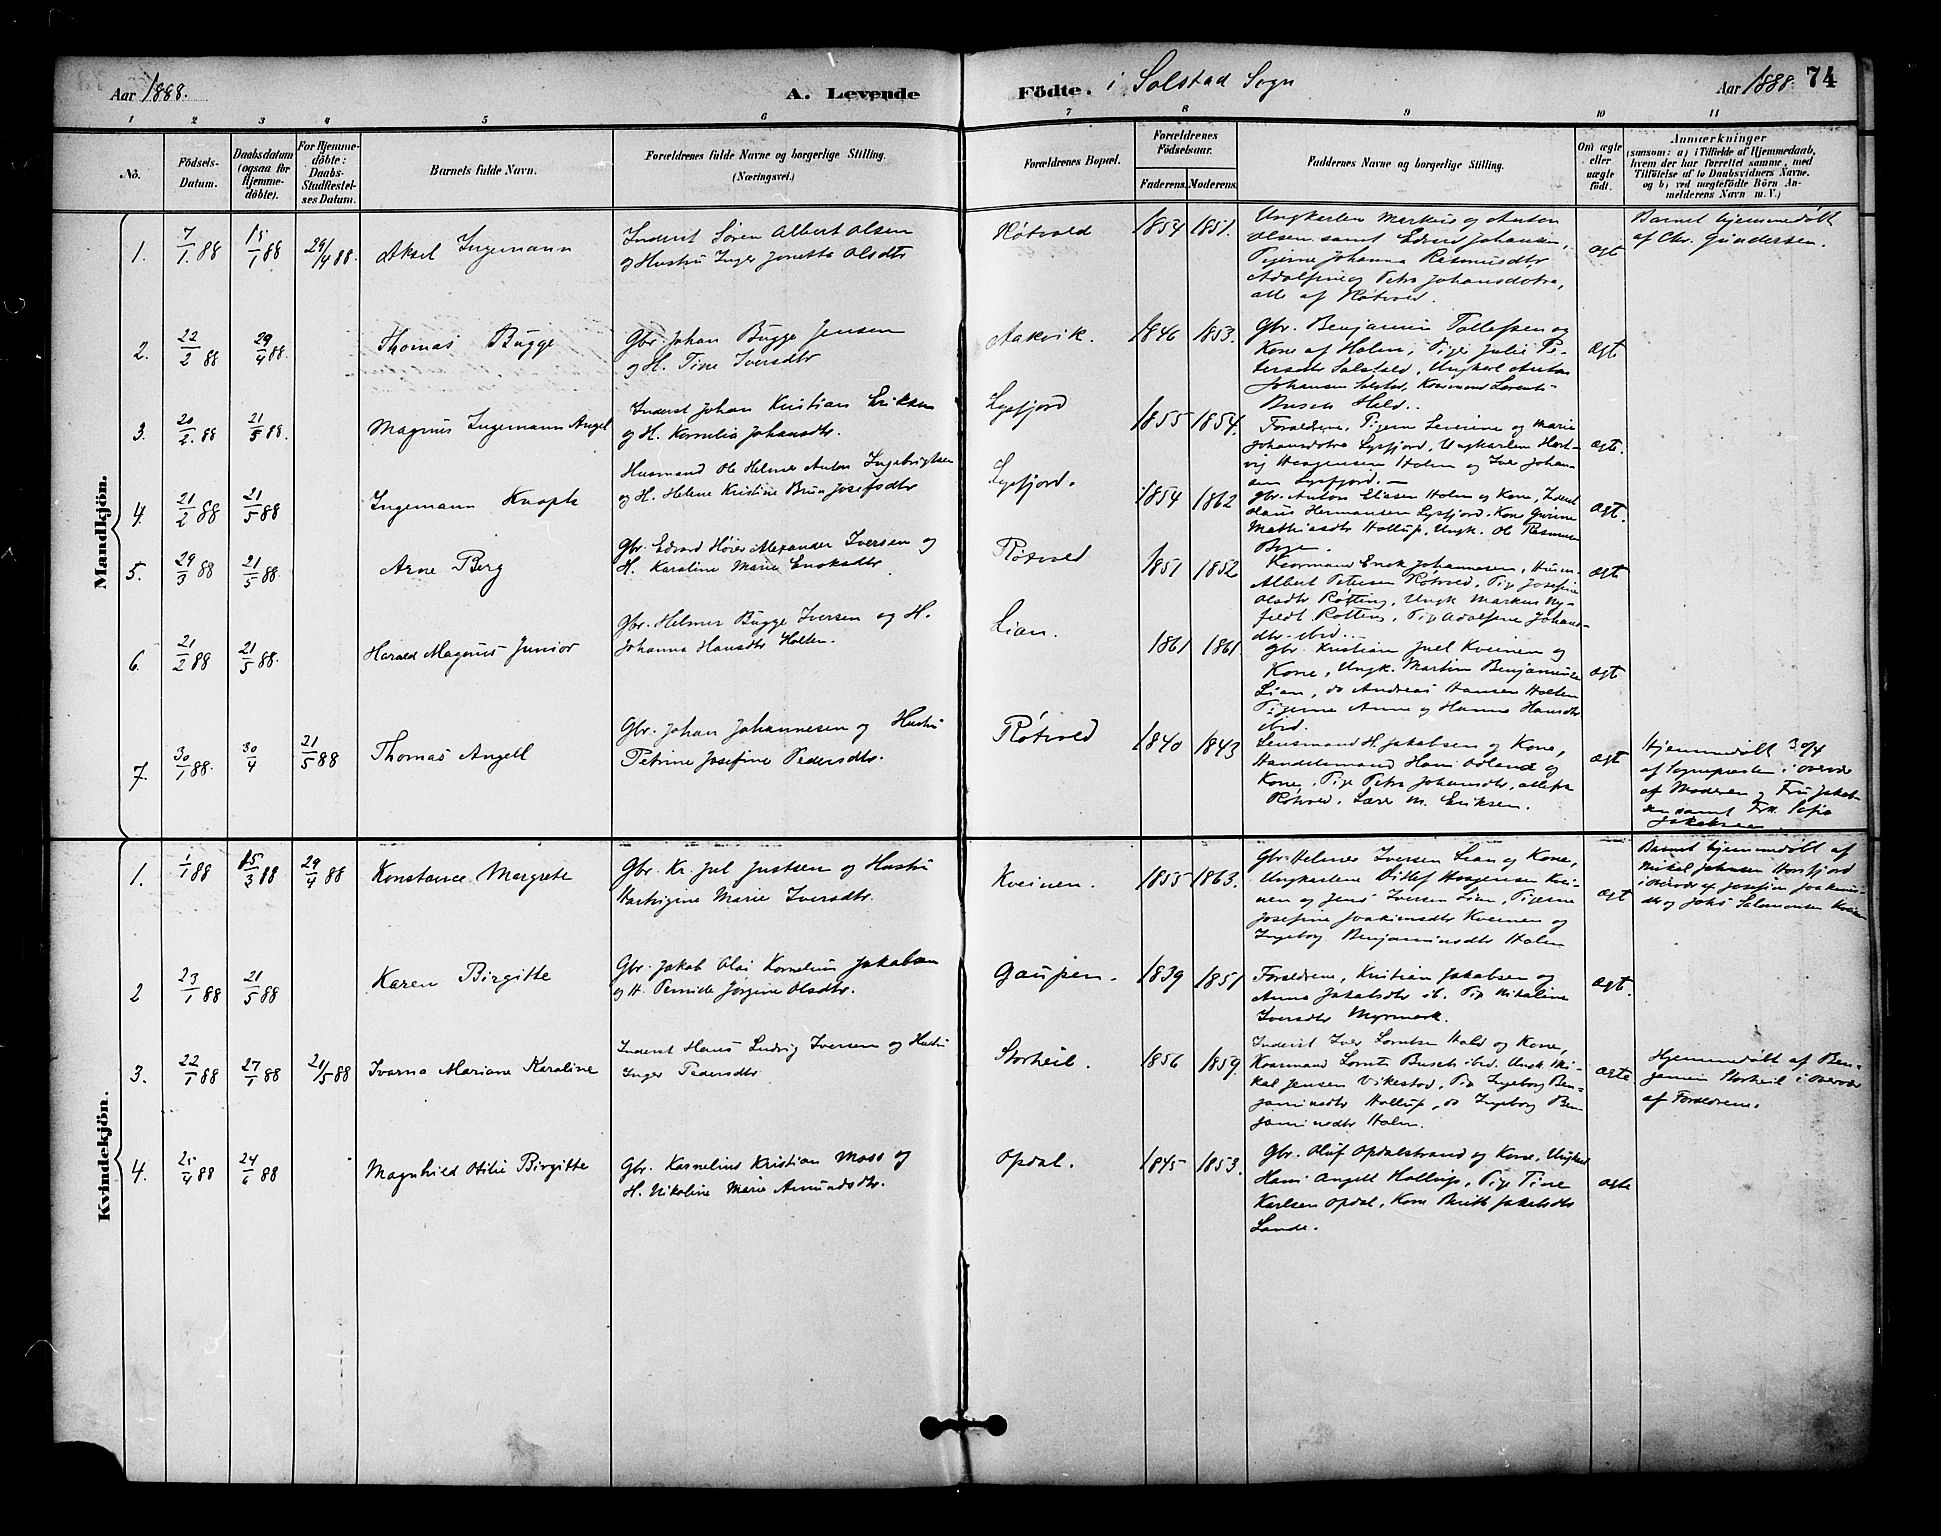 Aar 1888.
A. Levende Födte. i Solstad Sogn
Aar 1888. 74
1 2 3 4 5 6 7 8 9 10 11
No.
Födsels-Datum.
Daabsdatum (ogsaa for Hjemme-döbte).
For Hjemme-döbte: Daabs-Stadfæstel-ses Datum.
Barnets fulde Navn.
Forældrenes fulde Navne og borgerlige Stilling.
(Næringsvei.)
Forældrenes Bopæl.
Forældrenes Födselsaar.
Faderens. Moderens.
Faddernes Navne og borgerlige Stilling.
Om ægte eller uægte födt.
Anmærkninger
(saasom: a) i Tilfælde af Hjemmedaab,
hvem der har forrettet samme, med
Tilföielse af to Daabsvidners Navne.
og b) ved uægtefödte Börn An-
melderens Navn m. V.)
Mandkjön.
1. 7/1 88 15/1 88 29/4 88. Aksel Ingemann
Inderst Søren Albert Olsen
og Hustru Inger Jonetta Olsdtr
Røtvold 1854 1851.
Ungkarlen Markus og Anton
Olsen samt Edvard Johansen,
Pigerne Johanna Rasmusdtr
Adolfine og Petra Johansdøtre,
alle af Røtvold.
ægt
Barnet hjemmedøbt
af Chr. Gundersen.
2. 22/2 88 29/4 88. Thomas Bugge
Gbr. Johan Bugge Jensen
og H. Tine Iversdtr
Aakvik. 1846 1853.
Gbr. Benjamin Tollefsen og
Kone af Holm, Pige Julie Pe-
tersdtr Solstad, Ungkarl Anton
Johansen Solstad, Kaarmand Lorents
Busch Hald.
ægt
3. 20/2 88 21/5 88. Magnus Ingemann Angel
Inderst Johan Kristian Eriksen
og H. Kornelia Johansdtr.
Lysfjord 1855 1854.
Forældrene, Pigerne Levine og Marie
Johansdøtre Lysfjord, Ungkarlen Hart-
vig Haagensen Holm og Iver Johan-
sen Lysfjord.
ægt.
4. 21/2 88 21/5 88 Ingemann Knoph
Husmand Ole Helmer Anton Ingebrigtsen
og H. Helene Kristine Brun Josefsdtr
Lysfjord. 1854 1862
Gbr. Anton Eliasen Holm og Kone, Inderst
Olaus Hermansen Lysfjord, Kone
Mathiasdtr Hollup, Ungk. Ole Rasmus
ægt.
5. 29/1 88 21/5 88. Arne Berg
Gbr. Edvard Høier Alexander Iversen og
H. Karoline Marie Enoksdtr
Røtvold 1851 1852
Kaarmand Enok Johannesen, Husm.
Albert Petersen Røtvold, Pige Josefine
Olsdtr Røtting, Ungk Markus Ny-
feldt Røtting, Pige Adolfine Johans-
dtr ibid.
ægt
6. 21/2 88 21/5 88. Harald Magnus Junior
Gbr. Helmer Bugge Iversen og H.
Johanna Hansdtr Holten.
Lian. 1861 1861.
Gbr. Kristian Juel Kveinen og
Kone, Ungk. Martin Benjaminsen
Lian, do Andreas Hansen Holten
Pigerne Anne og Hanna Hansdtr
ibid.
ægt
7. 30/1 88. 30/4 21/5 88 Thomas Angell
Gbr. Johan Johannesen og Hustru
Petrine Josefine Pedersdtr.
Røtvold 1840 1843
Lensmand H. Jakobsen og Kone,
Handelsmand Hans Odland og
Kone, Pige Petra Johansdtr, alle fra
Røtvold, Lærer M. Eriksen.
ægt
Hjemmedøbt 30/4
af Sognepræsten i Overvær
af Moderen og Fru Jakob-
sen samt Frk. Sofie
Jakobsen.
Kvindekjön.
1. 1/1 88 15/3 88 29/4 88 Konstance Margrete
Gbr. Kr. Juel Justsen og Hustru
Hartvigine Marie Iversdtr.
Kveinen. 1855 1863.
Gbr. Helmer Iversen Lian og Kone,
Ungkarlene Ditlef Haagensen Kvei-
nen og Jens Iversen Lian, Pigerne
Josefine Joakimsdtr Kveinen og
Ingeborg Benjaminsdtr Holm
ægt
Barnet hjemmedøbt af
Mikal Johnsen Horsfjord
i Overvær af Josefine Joakims-
dtr og Johs Salomonsen
2 23/1 88 21/5 88 Karen Birgitte
Gbr. Jakob Olai Kornelius Jakobsen
og H. Jørgine Olsdtr.
Gaupen. 1839 1851
Forældrene, Kristian Jakobsen og
Anna Jakobsdtr ib. Pige Nikoline
Iversdtr Myrmark.
ægt.
3. 22/1 88 27/1 88 21/5 88 Ivarna Mariane Karoline
Inderst Hans Ludvig Iversen og Hustru
Inger Pedersdtr
Storheil. 1856 1859.
Inderst Iver Lorntsen Hald og Kone,
Kaarmand Lornts Busch ibid. Ungk Mi-
kal Jensen Vikestad, Pig Ingeborg Ben-
jaminsdtr Hollup, do Ingeborg Ben-
jaminsdtr Holm.
ægte
Hjemmedøbt af Ben-
jamin Storheil i Overvær
af Forældrene.
4. 25/4 88 24/6 88 Magnhild Otilie Birgitte
Gbr. Kornelius Kristian Moss og
H. Nikoline Marie Amundsdtr.
Opdal. 1845 1853.
Gbr. Oluf Opdalstrand og Kone, Ungkarl
Hans Angell Hollup, Pige Tine
Karlsen Opdal, Kone Berith Jakobsdtr
Lande.
ægte